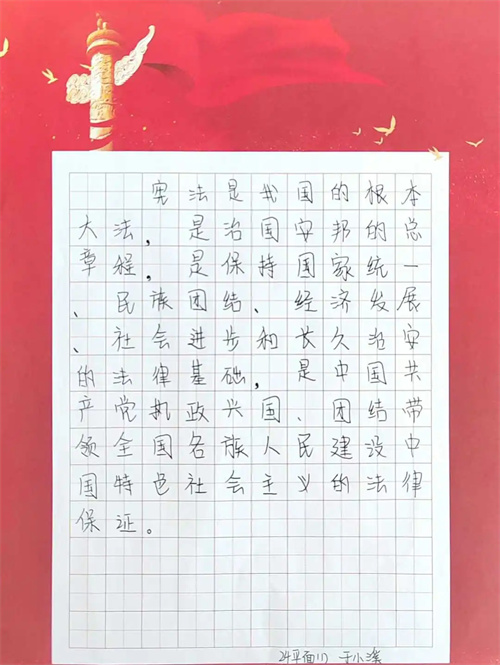 宪法是我国的根本
大法,是治国安邦的总
章程,是保持国家统一
、民族团结、经济发展
、社会进步和长久治安
的法律基础,是中国共
产党执政兴国、团结带
领全国各族人民建设中
国特色社会主义的法律
保证。
24平面(1) 于小溪